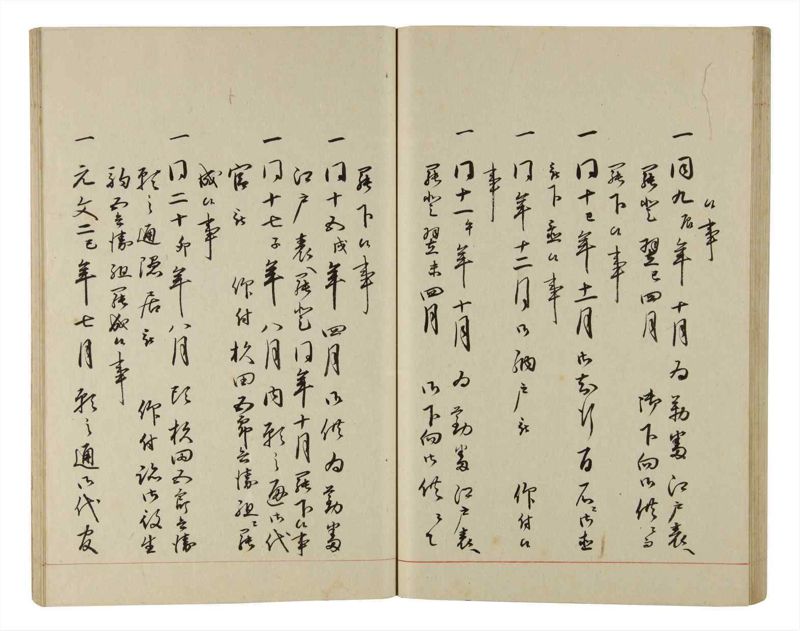 候事
一同九辰年十月為勤番江戸表へ
罷登翌巳四月 御下向御供ニ而
罷下候事
一同十巳年十一月御知行百石ニ御直
被下置候事
一同年十二月御納戸被 仰付候
事
一同十一午年十月為勤番江戸表へ
罷登翌未四月 御下向御供ニて
罷下候事
一同十五戌年四月御供為勤番
江戸表へ罷登同年十月罷下候事
一同十七子年八月内願之通御代
官被 仰付松田五郎兵衛組ニ罷
成候事
一同二十卯年八月頭松田五郎兵衛
願之通隠居被 仰付
組罷成候事
一元文二巳年七月願之通御代官